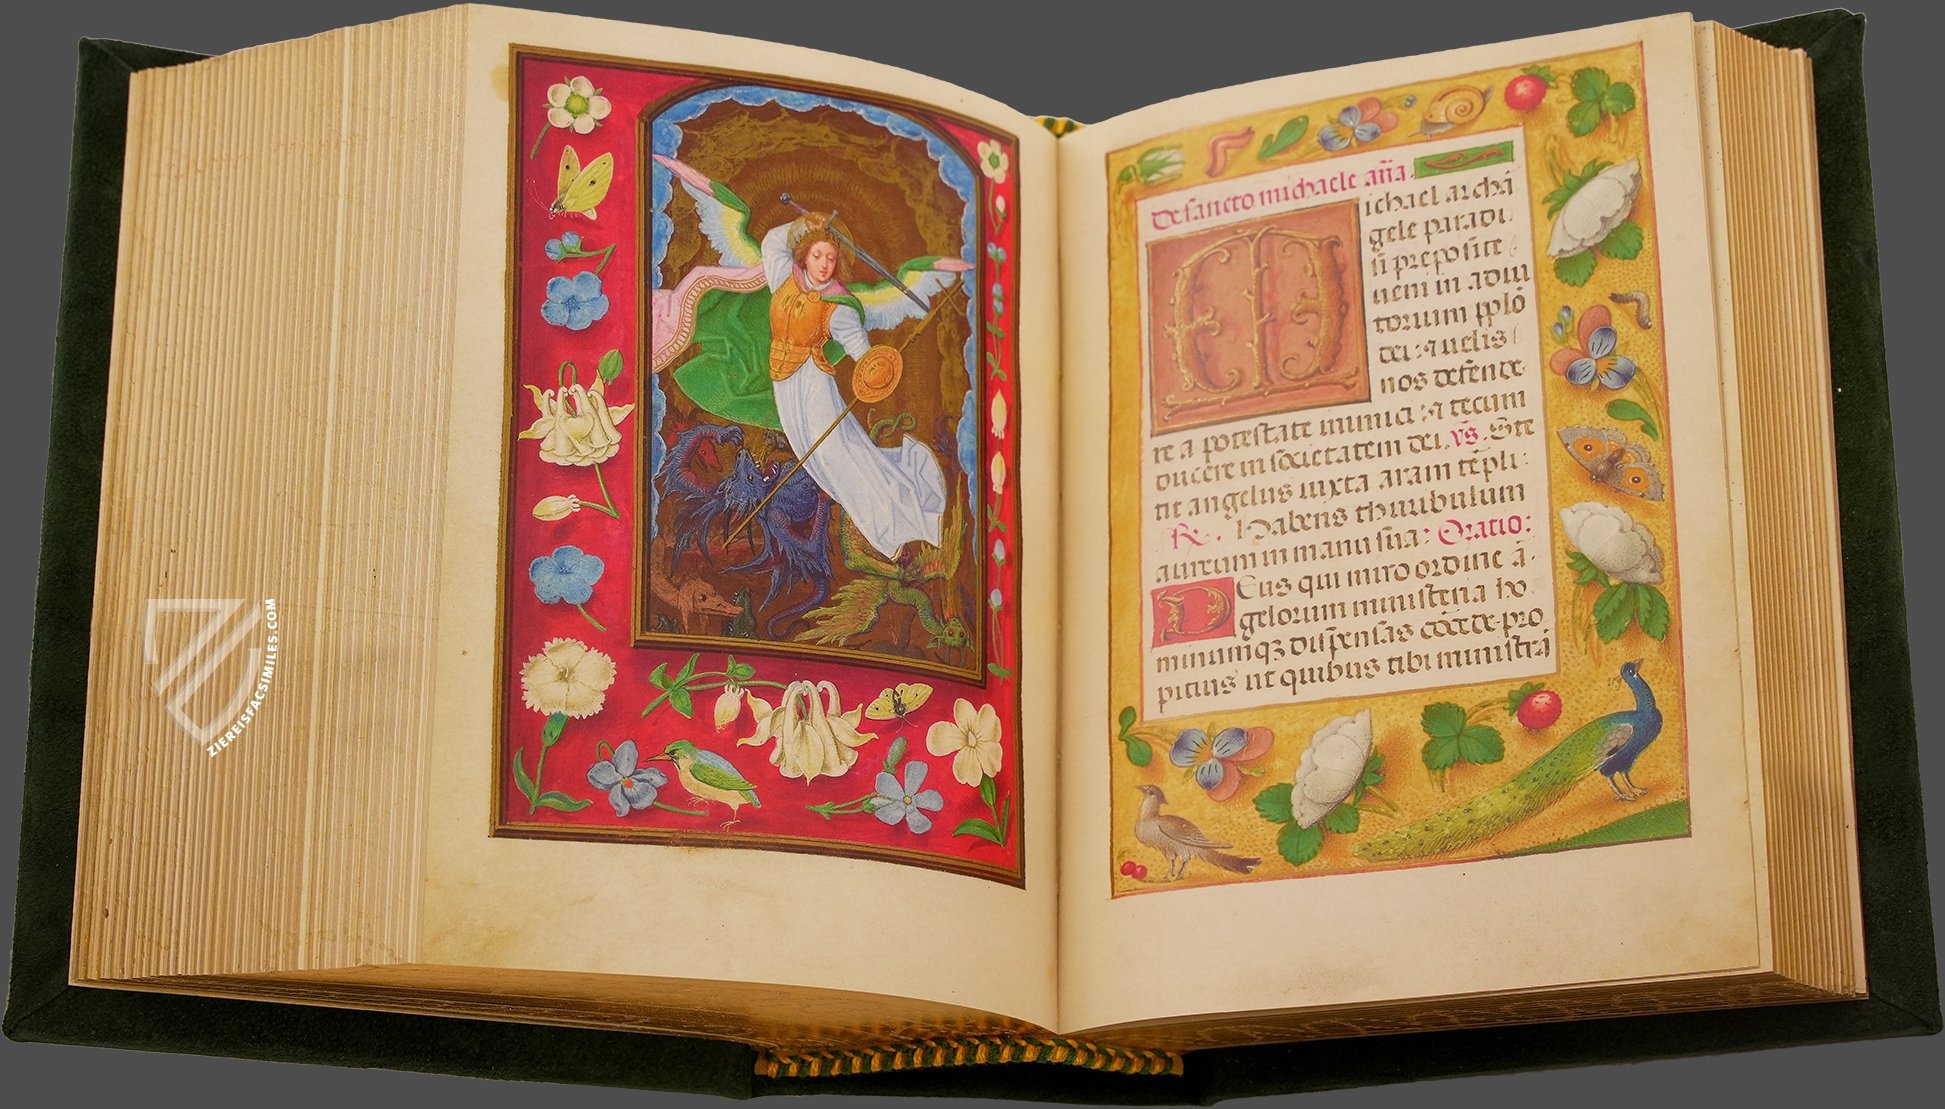 De sancto michaele an̄a.
Michael archā
gele paradi
si preposite
ueni in adiu
torium pplō
dei: ꝛ uelis
nos defende
re a potestate inimici: ꝛ tecum
ducere in societatem dei. v̄s. Ste
tit angelus iuxta aram tēpli.
R. Habens thuribulum
aureum in manu sua: Oratio:
Deus qui miro ordine ā
gelorum ministeria ho
minumqꝫ dispensas cōcede pro
picius ut quibus tibi ministrā
ZIEREISFACSIMILES.COM